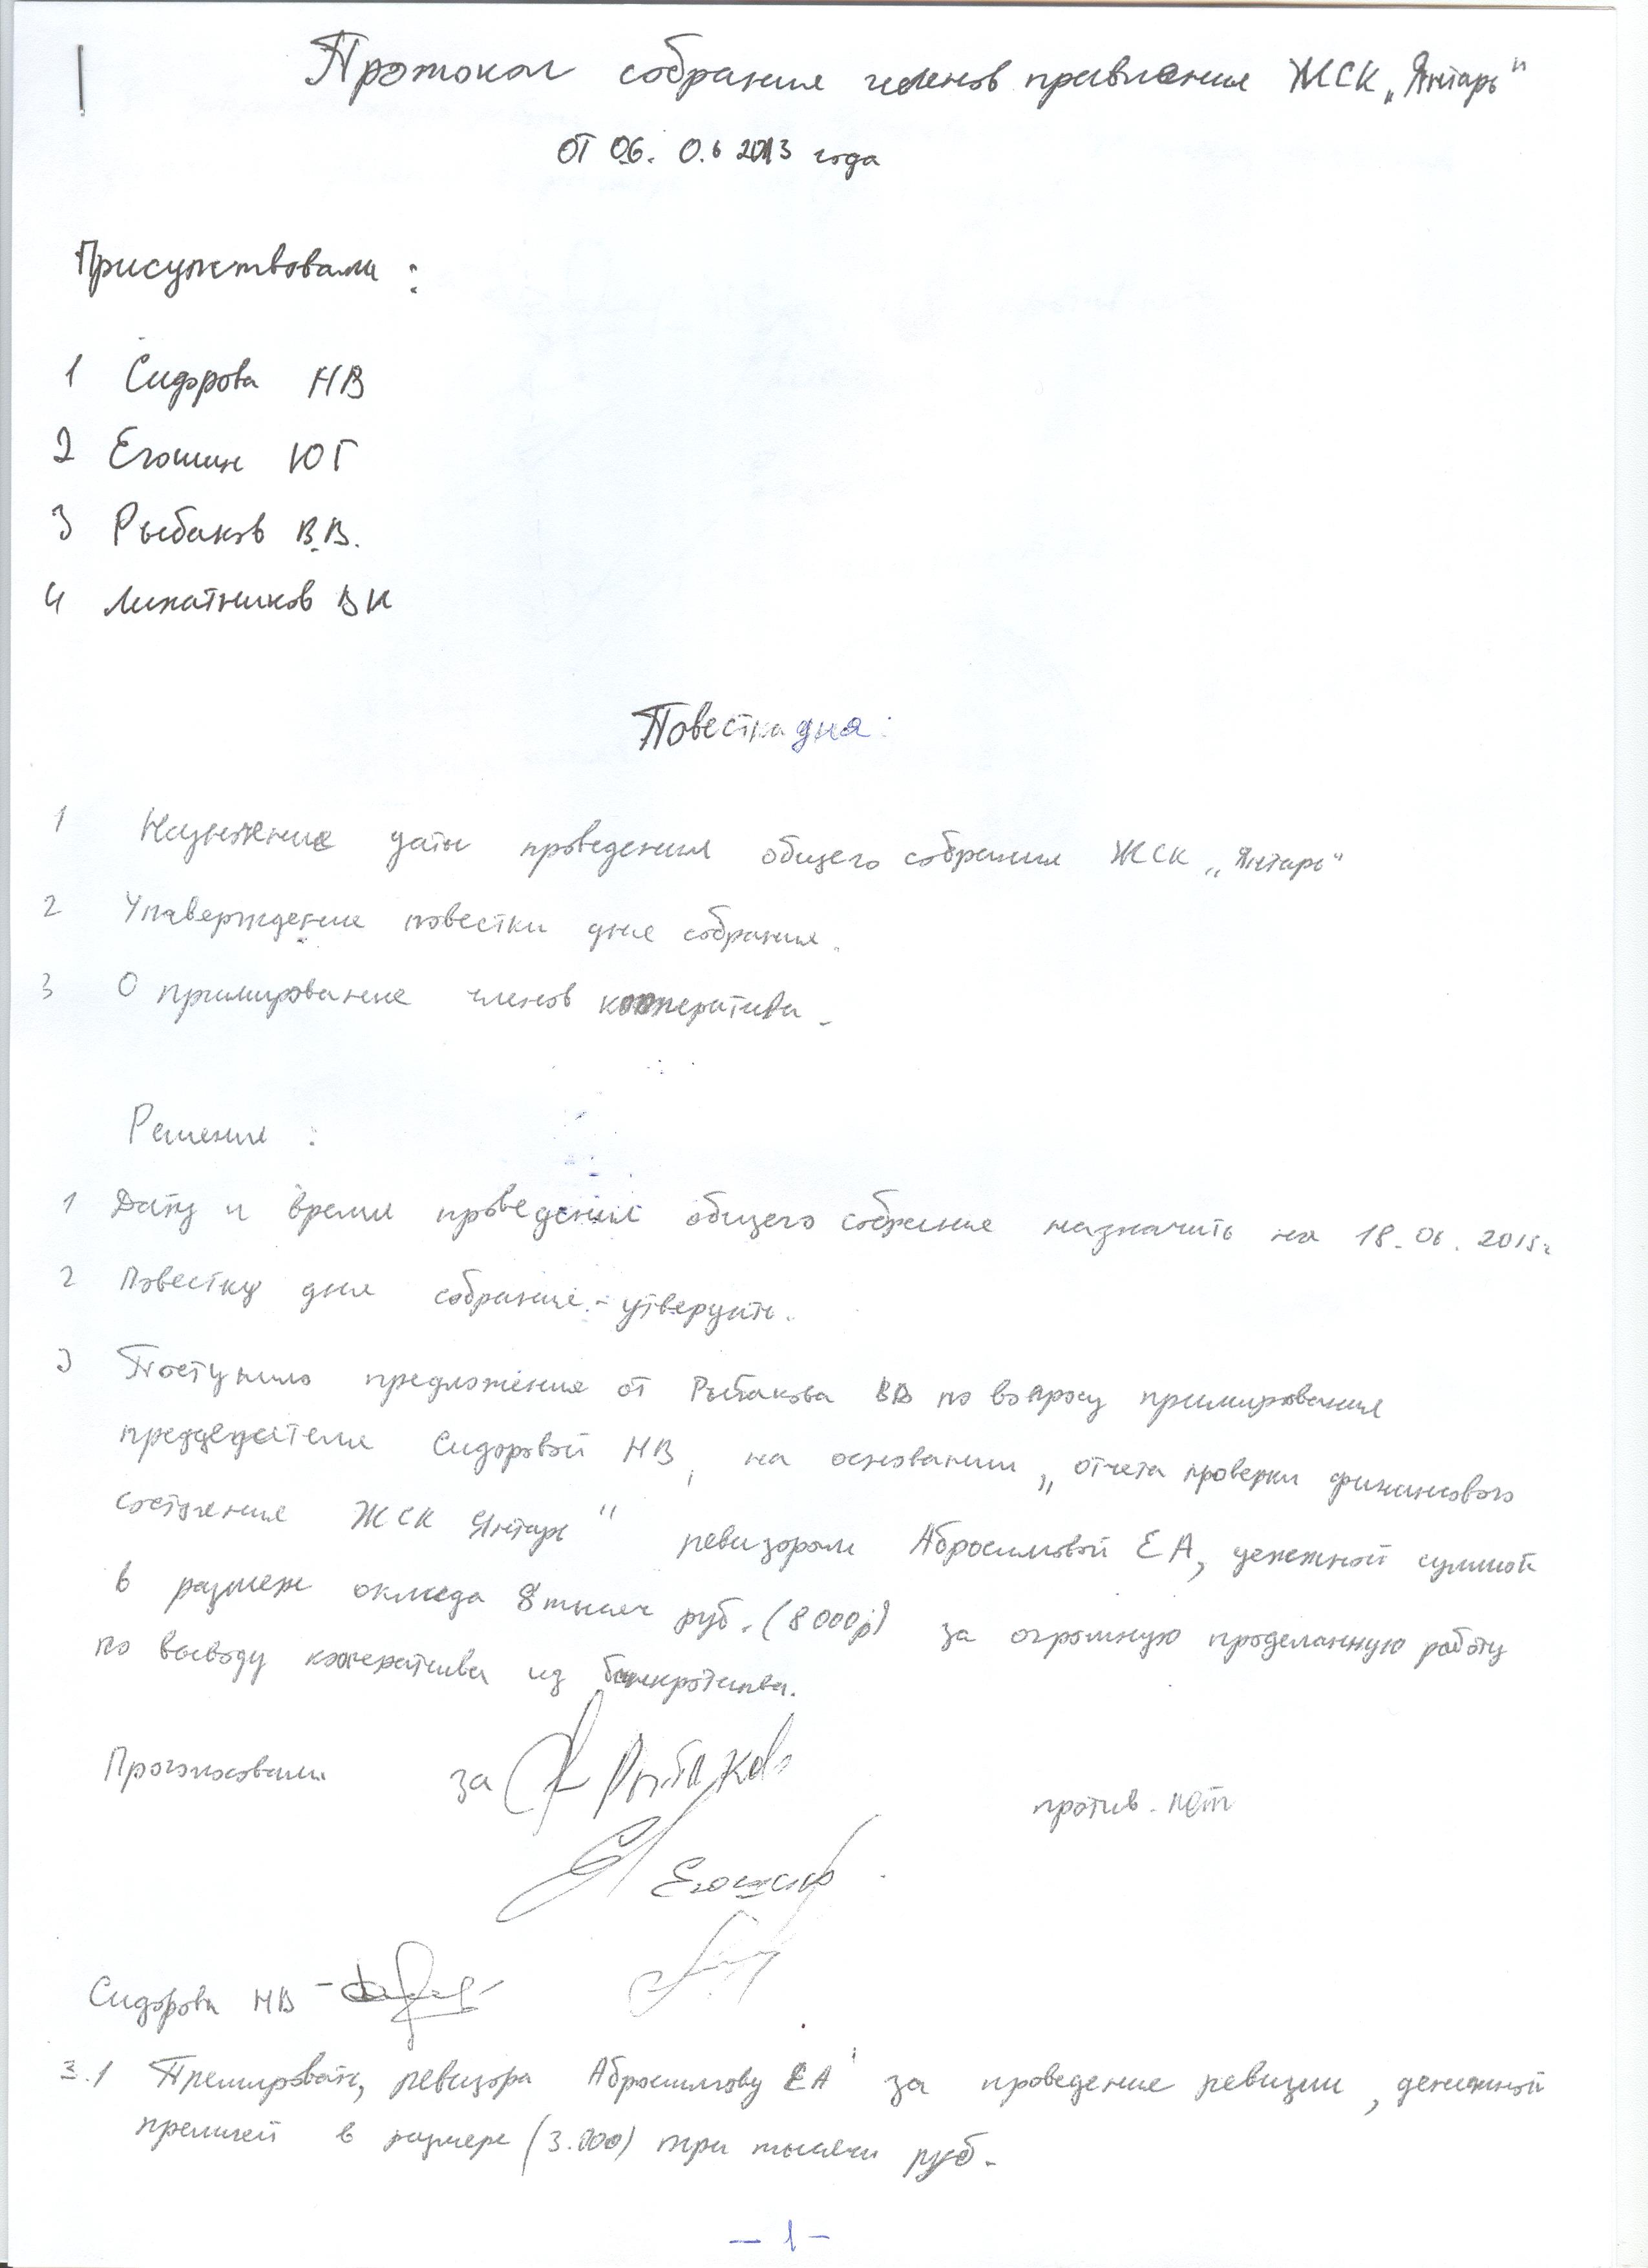 Протокол собрания членов правления ЖСК „Янтарь"
от 06. 0.6 2013 года
Присутствовали :
1 Сидорова НВ
2 Егошин ЮГ
3 Рыбаков В.В.
4 Липатников ВК
Повестка дня:
1 Назначение даты проведения общего собрания ЖСК „Янтарь"
2 Утверждение повестки дня собрания.
3 О примирование членов кооператива.
Решение :
1 Дату и время проведения общего собрания назначить на 18.06.2013г
2 Повестку дня собрания - утвердить.
3 Поступило предложение от Рыбакова ВВ по вопросу примирования
председателя Сидоровой НВ, на основании „отчета проверки финансового
состояния ЖСК Янтарь" ревизором Абросимовой ЕА, денежной суммой
в размере оклада 8 тысяч руб. (8000р) за огромную проделанную работу
по выводу кооператива из банкротства.
Проголосовали за Рыбаков против - нет
Егошин
Сидорова НВ -
3.1 Премировать, ревизора Абросимову ЕА за проведение ревизии, денежной
премией в размере (3.000) три тысячи руб.
- 1 -